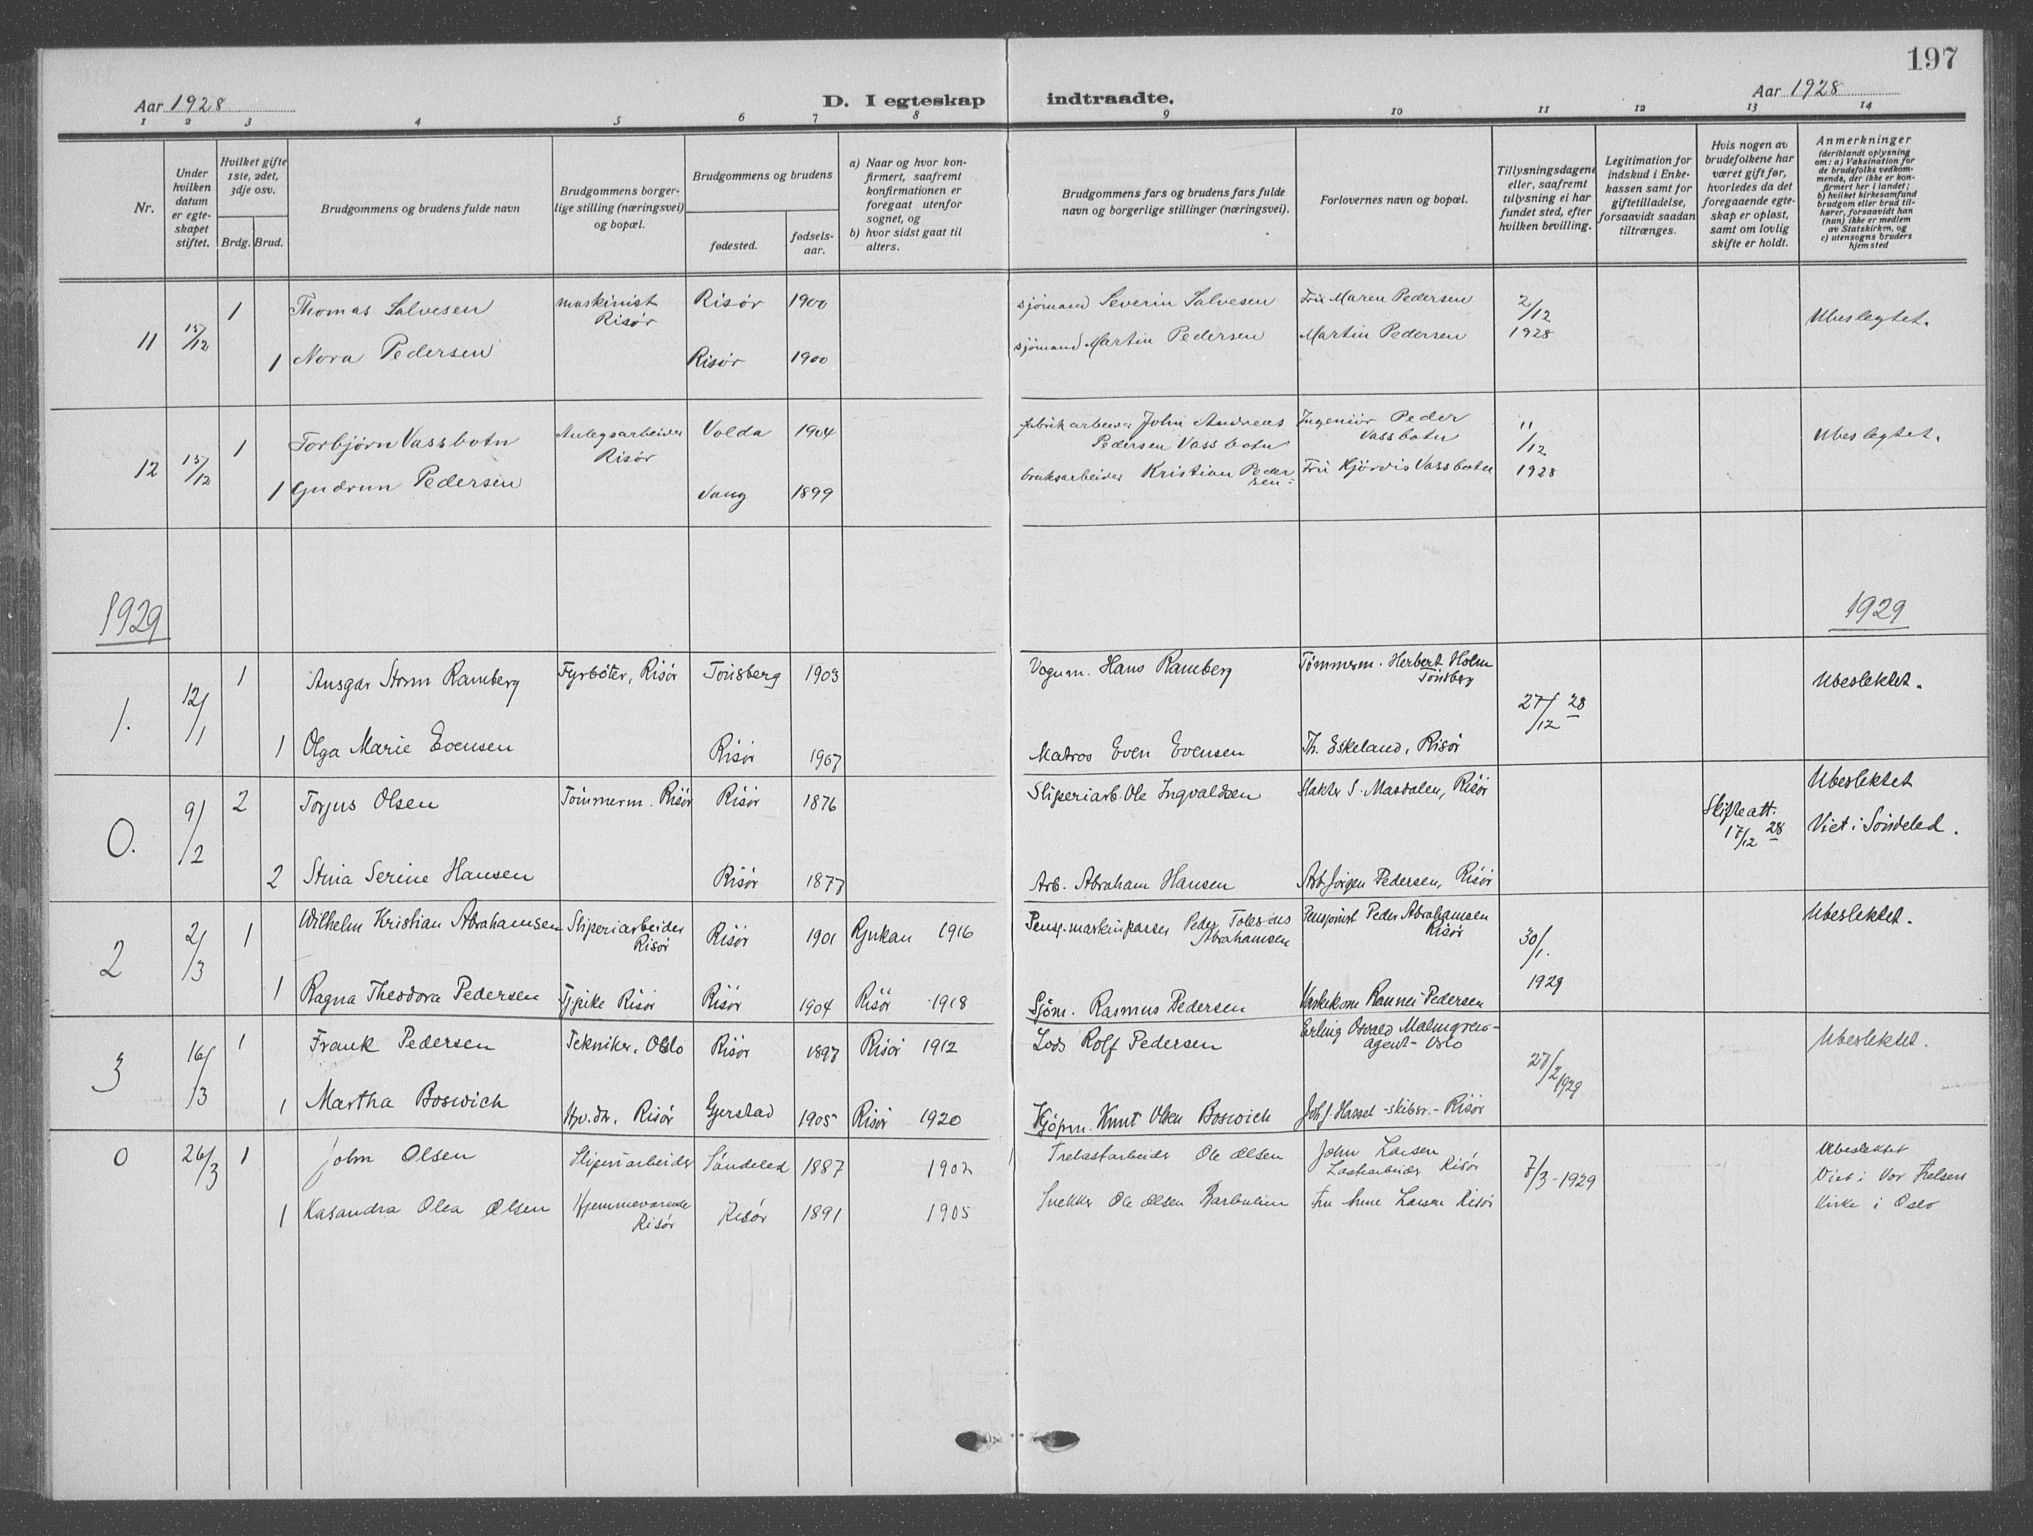 197
Aar 1928
D. I egteskap indtraadte.
Aar 1928
1 2 3 4 5 6 7 8 9 10 11 12 13 14
Nr.
Under hvilken datum er egteskapet stiftet.
Hvilket gifte 1ste, 2det, 3dje osv.
Brdg. Brud.
Brudgommens og brudens fulde navn
Brudgommens borgerlige stilling (næringsvei) og bopæl.
Brudgommens og brudens
fødested. fødselsaar.
a) Naar og hvor konfirmert, saafremt konfirmationen er foregaat utenfor sognet, og
b) hvor sidst gaat til alters.
Brudgommens fars og brudens fars fulde navn og borgerlige stillinger (næringsvei).
Forlovernes navn og bopæl.
Tillysningsdagene eller, saafremt tillysning ei har fundet sted, efter hvilken bevilling.
Legitimation for indskud i Enkekassen samt for giftetilladelse, forsaavidt saadan tiltrænges.
Hvis nogen av brudefolkene har været gift før, hvorledes da det foregaaende egteskap er opløst, samt om lovlig skifte er holdt.
Anmerkninger
(deriblandt oplysning om: a) Vaksination for de brudefolks vedkommende, der ikke er konfirmert her i landet; b) hvilket kirkesamfund brudgom eller brud tilhører, forsaavidt han (hun) ikke er medlem av Statskirken, og c) utensogns bruders hjemsted
11 15/12 1 Thomas Salvesen maskinist Risør Risør 1900 sjømand Severin Salvesen Fru Maren Pedersen 2/12 1928 Ubeslegtet.
1 Nora Pedersen Risør 1900 sjømand Martin Pedersen Martin Pedersen
12 15/12 1 Torbjørn Vassbotn Anlegsarbeider Risør Volda 1904 fabrikarbeider John Andreas Pedersen Vassbotn Ingeniør Peder Vassbotn 11/12 1928 Ubeslegtet.
1 Gudrun Pedersen Vang 1899 bruksarbeider Kristian Pedersen Fru Hjørdis Vassbotn
1929 1929
1. 12/1 1 Ansgar Storm Ramberg Fyrbøter, Risør Tønsberg 1903 Vognm. Hans Ramberg Tømmerm. Herbert Holm Tønsberg 27/12 28 Ubeslektet.
1 Olga Marie Evensen Risør 1907 Matros Even Evensen Th. Eskeland, Risør
0. 9/2 2 Torjus Olsen Tømmerm. Risør Risør 1876 Sliperiarb. Ole Ingvaldsen S. Masdalen, Risør Skifteatt. 17/12 28 Ubeslektet Viet i Søndeled.
2 Stina Serine Hansen Risør 1877 Arb. Abraham Hansen Arb Jørgen Pedersen, Risør
2 2/3 1 Wilhelm Kristian Abrahamsen Sliperiarbeider Risør Risør 1901 Rjukan 1916 Pensj. maskinpasser Peder Abrahamsen Pensjonist Peder Abrahamsen Risør 30/1. 1929 Ubeslektet.
1 Ragna Theodora Pedersen Risør Risør 1904 Risør 1918 Sjøm. Rasmus Pedersen Pedersen
3 16/3 1 Frank Pedersen Tekniker, Oslo Risør 1897 Risør 1912 Lods Rolf Pedersen Erling Osvald Malmgren - agent - Oslo 27/2 1929 Ubeslektet.
1 Martha Boswich Risør Gjerstad 1905 Risør 1920 Kjøpm. Knut Olsen Boswich Joh. J. Hassel - skibsr. - Risør
0 26/3 1 John Olsen Sliperiarbeider Søndeled 1887 1902 Trelastarbeider Ole Olsen John Larsen Lastarbeider Risør 7/3-1929 Ubeslektet Viet i Vor Frelsers Kirke i Oslo
1 Kasandra Olea Olsen Hjemmeværende Risør Risør 1891 1905 Snekker Ole Olsen Fru Anne Larsen Risør